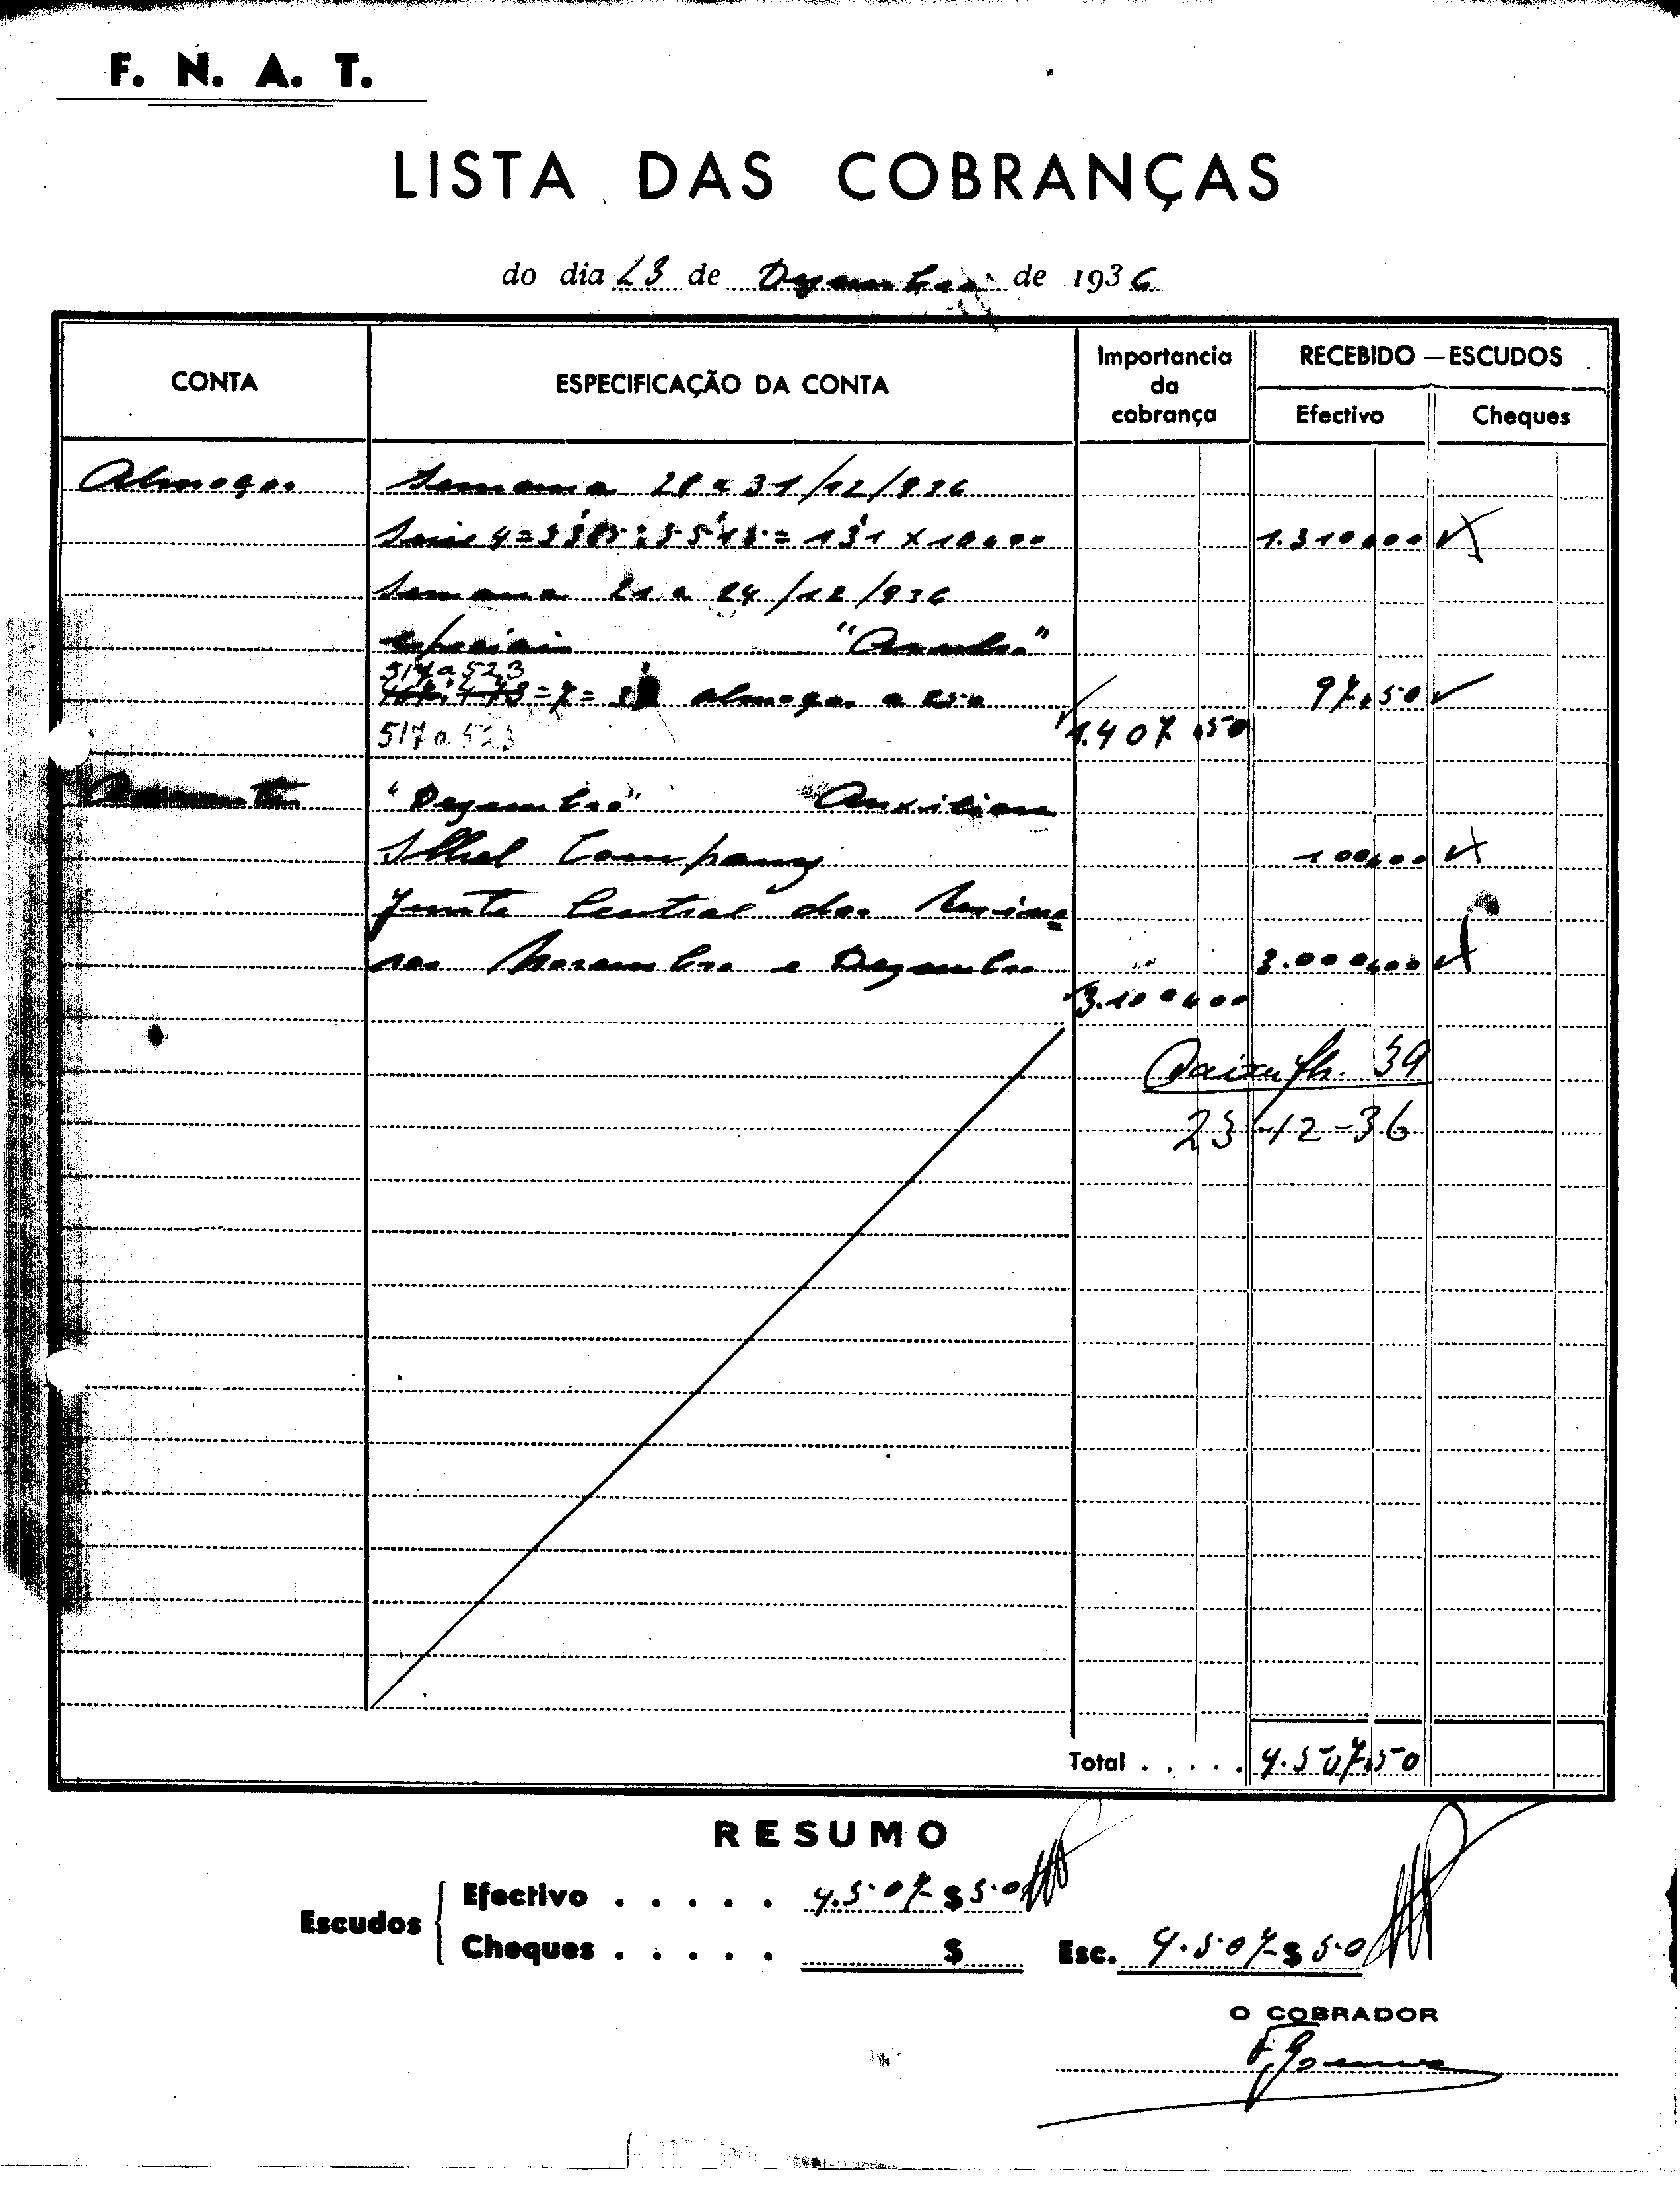 F. N. A. T.
LISTA DAS COBRANÇAS
do dia 23 de Dezembro de 1936
CONTA
ESPECIFICAÇÃO DA CONTA
Importancia da cobrança
RECEBIDO — ESCUDOS
Efectivo
Cheques
Almoços Semana 28 a 31/12/936
Serie 4 = = 131 x 10$00 1.310$00
Semana 21 a 24/12/936
Especiais
517 a 523
= 7 = almoços a 2$50 97$50
517 a 523 1.407$50
"Dezembro" Auxiliar
Shel Company 100$00
Junta Central das
Novembro e Dezembro 3.000$00
3.100$00
Caixa fls. 39
23-12-36
Total . . . . . 4.507$50
RESUMO
Escudos
Efectivo . . . . . 4.507$50
Cheques . . . . . $
Esc. 4.507$50
O COBRADOR